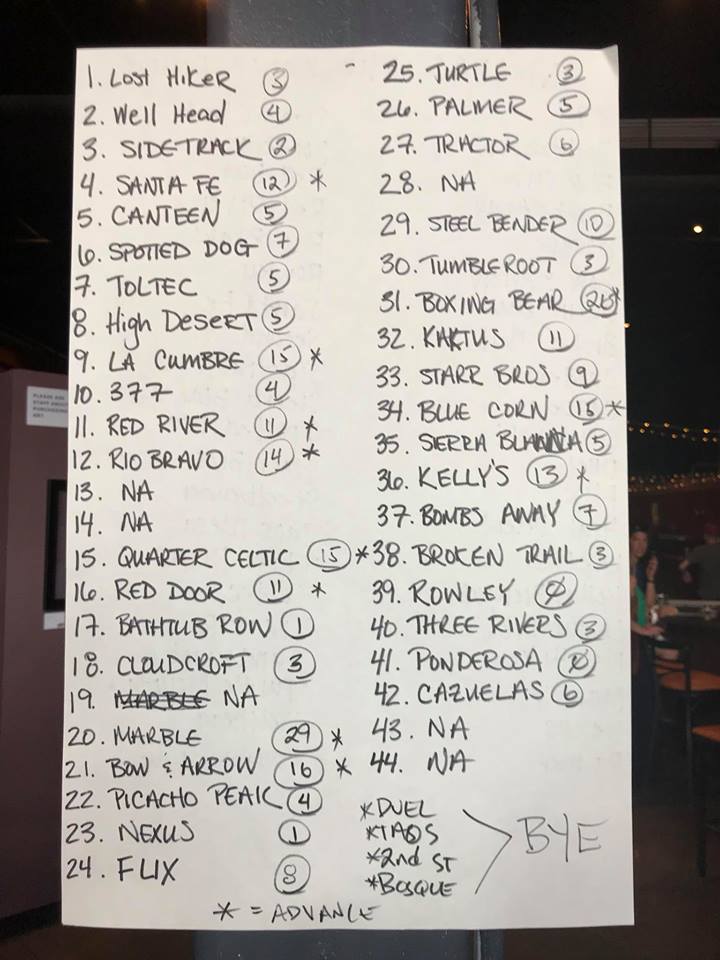 1. Lost Hiker 3
2. Well Head 4
3. SIDETRACK 2
4. SANTA FE 12 *
5. CANTEEN 5
6. SPOTTED DOG 7
7. TOLTEC 5
8. High DESERT 5
9. LA CUMBRE 15 *
10. 377 4
11. RED RIVER 11 *
12. RIO BRAVO 14 *
13. NA
14. NA
15. QUARTER CELTIC 15 *
16. RED DOOR 11 *
17. BATHTUB ROW 1
18. CLOUDCROFT 3
19. MARBLE NA
20. MARBLE 29 *
21. BOW & ARROW 16 *
22. PICACHO PEAK 4
23. NEXUS 1
24. FLIX 8
25. TURTLE 3
26. PALMER 5
27. TRACTOR 6
28. NA
29. STEEL BENDER 10
30. TUMBLEROOT 3
31. BOXING BEAR *
32. KAKTUS 11
33. STARR BROS 9
34. BLUE CORN 15 *
35. SIERRA BLANCA 5
36. KELLY'S 13 *
37. BOMBS AWAY 7
38. BROKEN TRAIL 3
39. ROWLEY 0
40. THREE RIVERS 3
41. PONDEROSA
42. CAZUELAS 6
43. NA
44. NA
*DUEL
*TAOS
*2nd ST
*BOSQUE
BYE
* = ADVANCE
PLEASE ASK
STAFF ABOUT
PURCHASING
ART